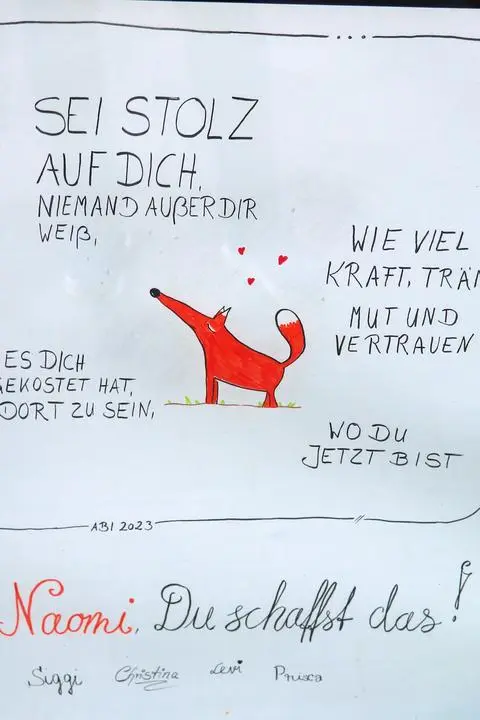 SEI STOLZ
AUF DICH,
NIEMAND AUßER DIR
WEIß,
WIE VIEL
KRAFT, TRÄN
MUT UND
VERTRAUEN
ES DICH
GEKOSTET HAT,
DORT ZU SEIN,
WO DU
JETZT BIST
ABI 2023
Naomi, Du schaffst das!
Siggi Christina Levi Prisca